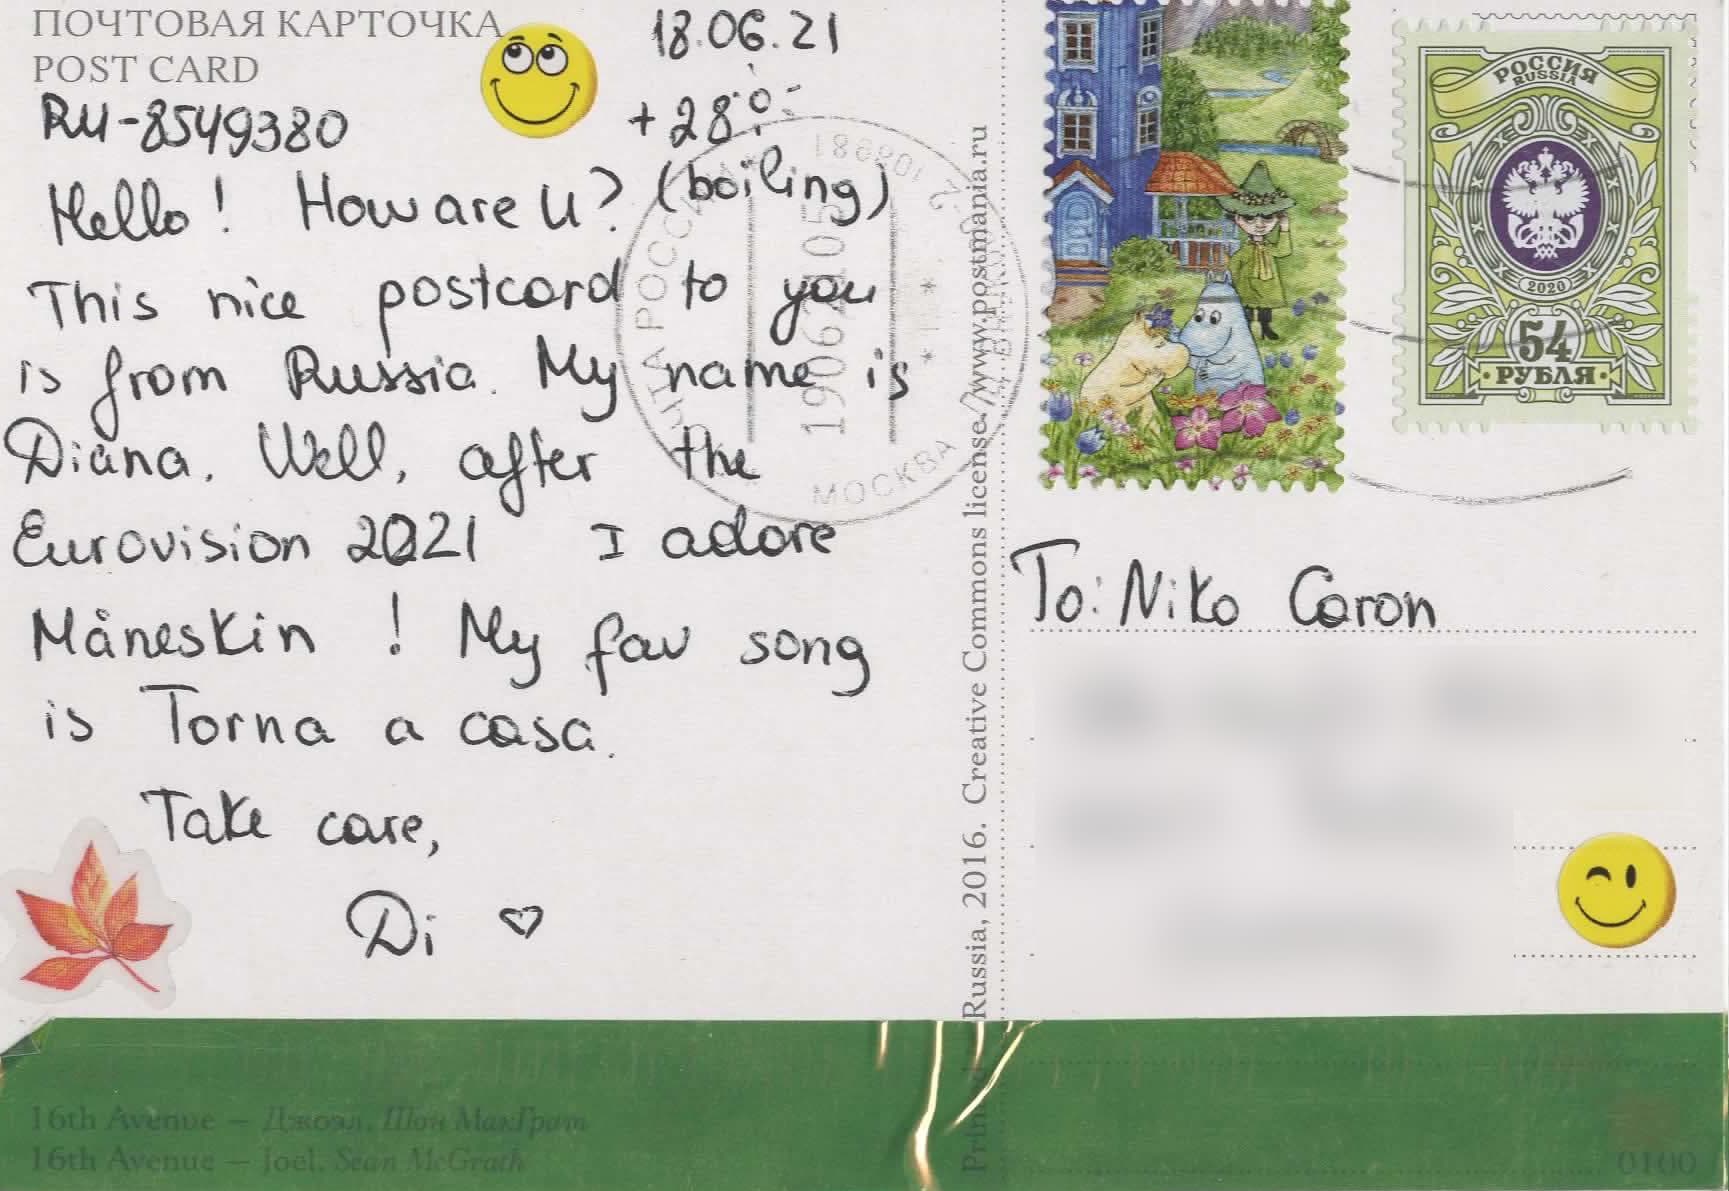 ПОЧТОВАЯ КАРТОЧКА
POST CARD
RU-8549380
18.06.21
+28°
(boiling)
Hello! How are U?
This nice postcard to you
is from Russia. My name is
Diana. Well, after the
Eurovision 2021 I adore
Måneskin! My fav song
is Torna a casa.
Take care,
Di ♡
16th Avenue – Джоэл, Шон МакГрат
16th Avenue – Joel, Sean McGrath
Russia, 2016. Creative Commons license/www.postmania.ru
МОСКВА
РОССИЯ
RUSSIA
2020
54
РУБЛЯ
To: Niko Caron
0100